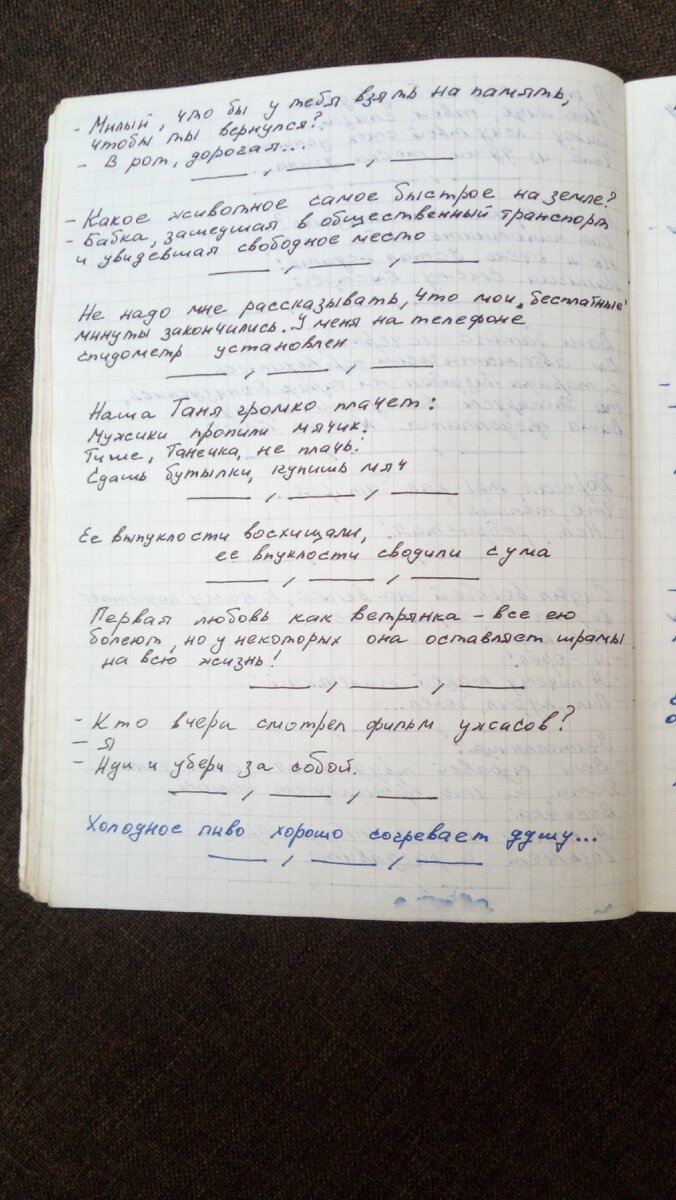 - Милый, что бы у тебя взять на память,
чтобы ты вернулся?
- В рот, дорогая...
— , — , —
- Какое животное самое быстрое на земле?
- Бабка, зашедшая в общественный транспорт
и увидевшая свободное место
— , — , —
Не надо мне рассказывать, что мои „бесплатные"
минуты закончились. У меня на телефоне
спидометр установлен
— , — , —
Наша Таня громко плачет:
Мужики пропили мячик.
Тише, Танечка, не плачь!
Сдашь бутылки, купишь мяч
— , — , —
Ее выпуклости восхищали,
ее впуклости сводили с ума
— , — , —
Первая любовь как ветрянка - все ею
болеют, но у некоторых она оставляет шрамы
на всю жизнь!
— , — , —
- Кто вчера смотрел фильм ужасов?
- Я
- Иди и убери за собой.
— , — , —
Холодное пиво хорошо согревает душу...
— , — , —